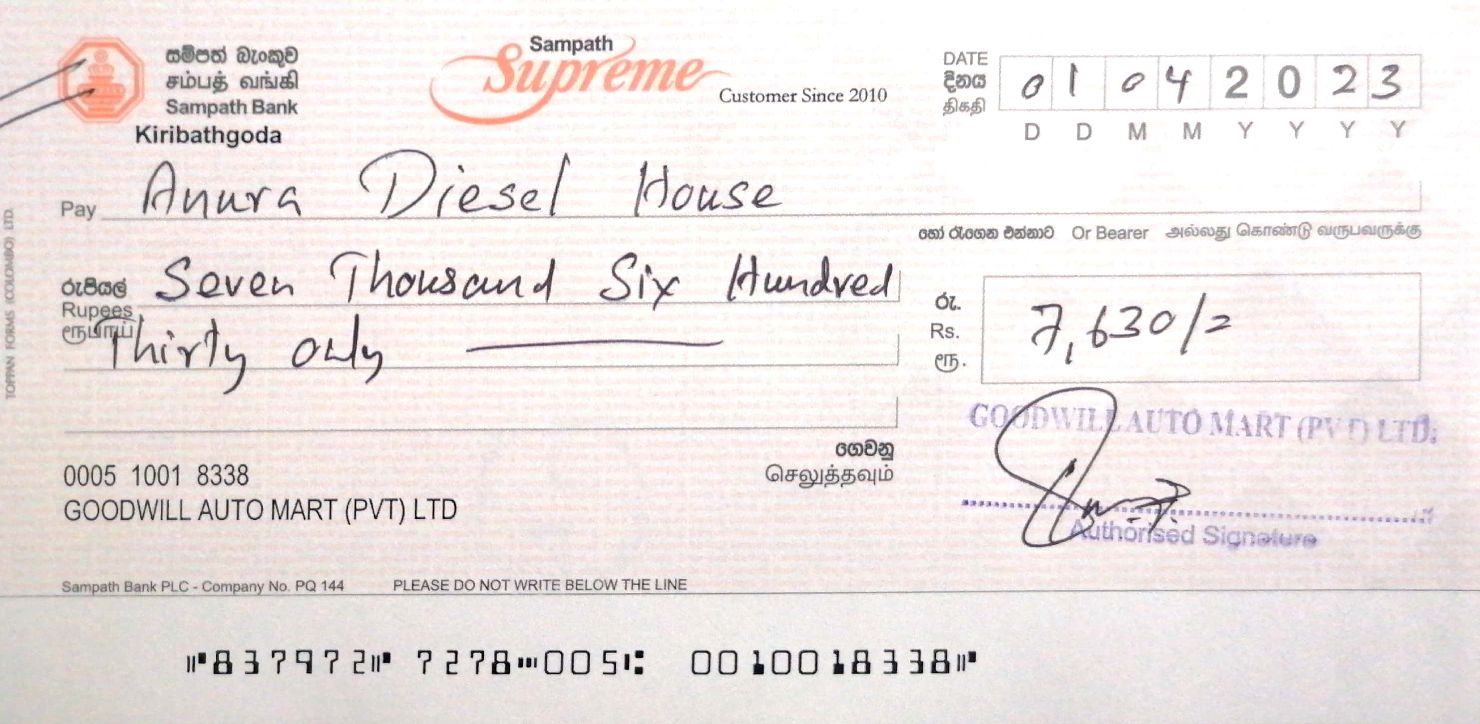 සම්පත් බැංකුව
சம்பத் வங்கி
Sampath Bank
Kiribathgoda
Sampath
Supreme
Customer Since 2010
DATE
දිනය
திகதி
01 04 2023
D D M M Y Y Y Y
Pay Anura Diesel House
හෝ රැගෙන එන්නාට Or Bearer அல்லது கொண்டு வருபவருக்கு
රුපියල්
Rupees
ரூபாய்
Seven Thousand Six Hundred
Thirty only
රු.
Rs.
ரூ.
7,630/=
ගෙවනු
செலுத்தவும்
GOODWILL AUTO MART (PVT) LTD.
Authorised Signature
0005 1001 8338
GOODWILL AUTO MART (PVT) LTD
Sampath Bank PLC - Company No. PQ 144 PLEASE DO NOT WRITE BELOW THE LINE
TOPPAN FORMS (COLOMBO) LTD.
⑈837972⑈ 7278⑉005⑆ 0010018338⑈